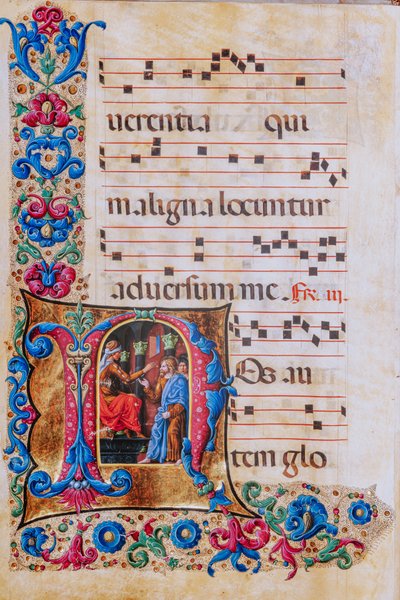 uerentia qui
maligna locuntur
aduersum me. Fr. iii
Nos au
tem glo